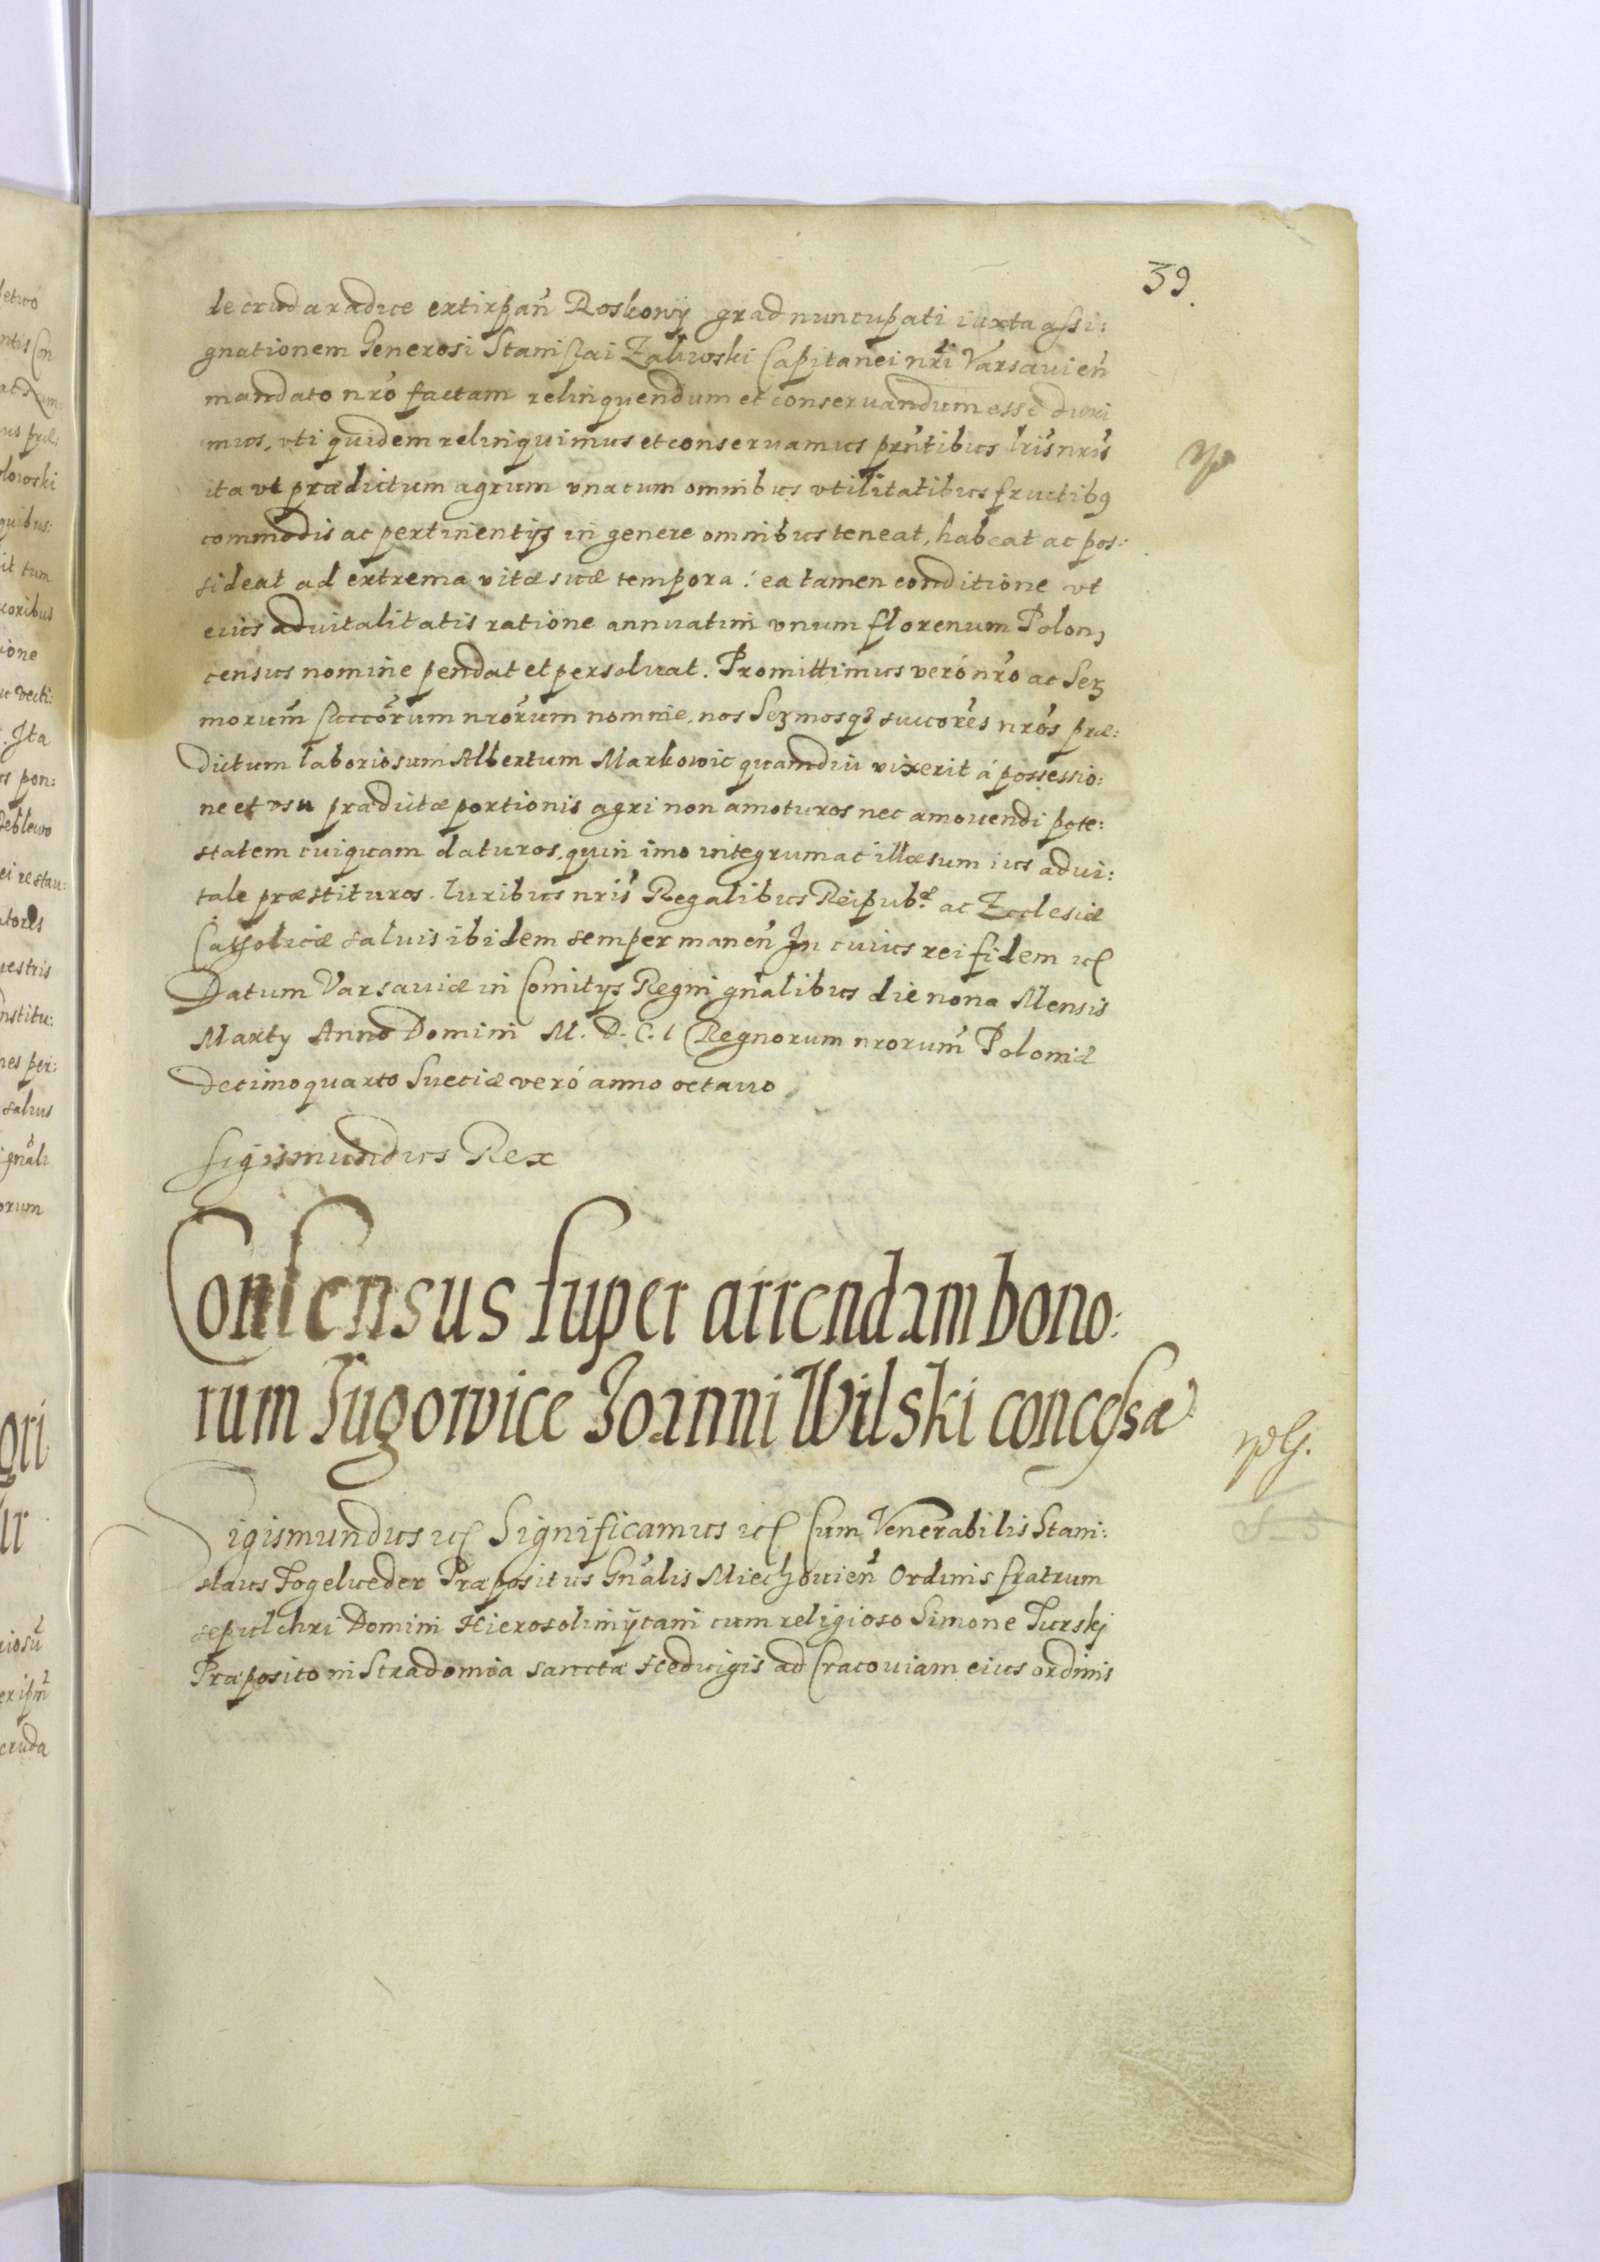 39.
de cruda radice extirpan̄ Roskowÿ grad nuncupati iuxta assi:
gnationem Generosi Stanislai Zaliwski Capitanei nr̄i Varsauien̄
mandato nr̄o factam relinquendum et conseruandum esse duxi
mus, vti quidem relinquimus et conseruamus prn̄tibus lr̄is nr̄is
ita vt prædictum agrum vna cum omnibus vtilitatibus fructibq
commodis ac pertinentijs in genere omnibus teneat, habeat ac pos:
sideat ad extrema vitæ suæ tempora: ea tamen conditione vt
eius aduitalitatis ratione annuatim vnum florenum Polon,
census nomine pendat et persoluat. Promittimus veró nr̄o ac Serz
morum̄ succōrum nrōrum nomine, nos Serzmosq3 succorēs nrōs præ:
dictum laboriosum Albertum Markowic quamdiu vixerit á possessio:
ne et vsu prædictæ portionis agri non amoturos nec amouendi pote:
statem cuiquam daturos, quin imo integrum ac illæsum ius adui:
tale præstituros. Iuribus nr̄is Regalibus Reipub.æ ac Ecclesiæ
Catholicæ saluis ibidem semper manen̄ In cuius rei fidem etc
Datum Varsauiæ in Comitijs Regni gn̄alibus die nona Mensis
Martij Anno Domini M. D. C. I Regnorum nrorum̄ Poloniæ
decimoquarto Sueciæ veró anno octauo
Sigismundus Rex
Consensus super arrendam bono:
rum Iugowice Joanni Wilski concessæ
Sigismundus etc Significamus etc Cum Venerabilis Stani:
slaus Fogelueder Præpositus Gn̄alis Miechouien̄ Ordinis fratrum
sepulchri Domini Hierosolimÿtani cum religioso Simone Turskj
Præposito in Stradomia sanctæ Heduigis ad Cracouiam eius ordinis